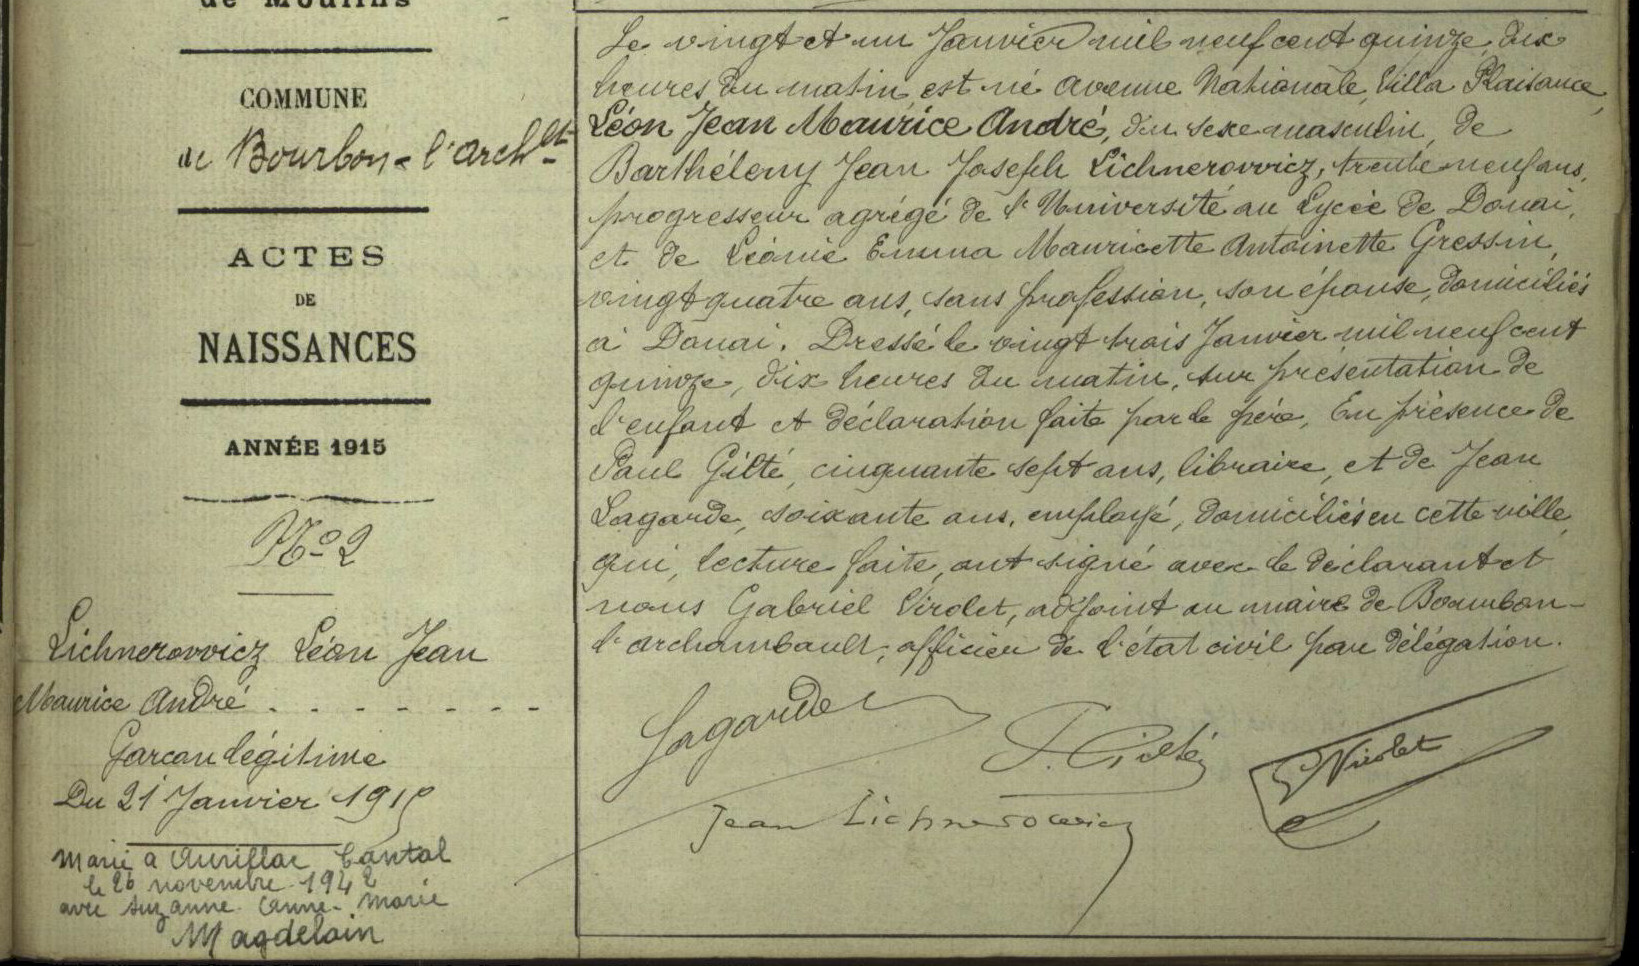 de Moulins
COMMUNE
de Bourbon-l'Arch<sup>lt</sup>
ACTES
DE
NAISSANCES
ANNÉE 1915
N<sup>o</sup> 2
Lichnerowicz Léon Jean
Maurice André
Garcon légitime
Du 21 Janvier 1915
Marié à Aurillac Cantal
le 26 novembre 1942
avec Suzanne Anne-Marie
Magdelain
Le vingt et un Janvier mil neuf cent quinze, dix
heures du matin, est né avenue Nationale, Villa Plaisance,
Léon Jean Maurice André, du sexe masculin, de
Barthélemy Jean Joseph Lichnerowicz, trente neuf ans,
progresseur agrégé de l'Université au Lycée de Douai,
et de Léonie Emma Mauricette Antoinette Gressin,
vingt quatre ans, sans profession, son épouse, domiciliés
à Douai. Dressé le vingt trois Janvier mil neuf cent
quinze, dix heures du matin, sur présentation de
l'enfant et déclaration faite par le père, En présence de
Paul Gilté, cinquante sept ans, libraire, et de Jean
Lagarde, soixante ans, employé, domiciliés en cette ville,
qui, lecture faite, ont signé avec le déclarant et
nous Gabriel Virolet, adjoint au maire de Bourbon-
l'archambault, officier de l'état civil par délégation.
Lagarde
P. Gilté
G Virolet
Jean Lichnerowicz